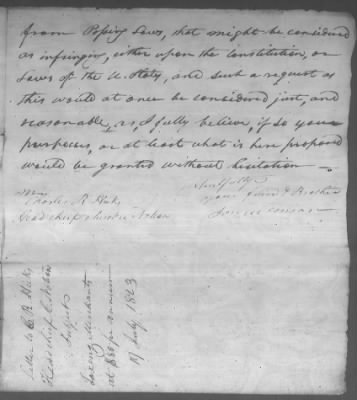 from Passing Laws, that might be considered
as infringing, either upon the Constitution, or
Laws of the U. States, and such a request as
this would at once be considered just, and
reasonable, as, I fully believe, if so your
purposes, or at least what is here proposed
would be granted without hesitation
your friend & Brother
Charles R. Hicks
Letter to C. R. Hicks
Subject
Taxing Merchants
at $80 per annum
July 1823